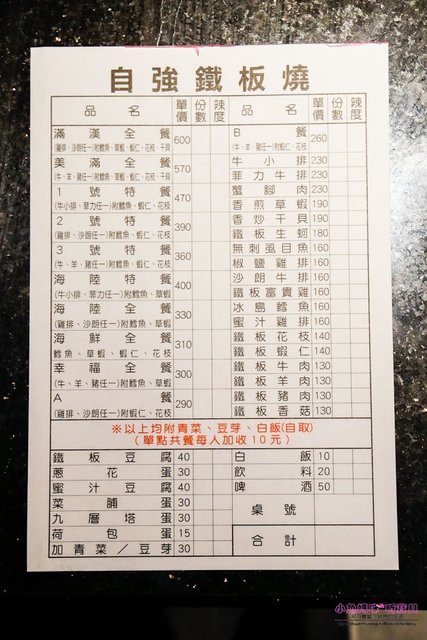 自強鐵板燒
品名 單價 份數 辣度
滿漢全餐 600
美滿全餐 570
(牛、羊、豬任一)附鱈魚、草蝦、蝦仁、花枝、干貝
1號特餐 470
(牛小排、菲力任一)附鱈魚、蝦仁、花枝
2號特餐 390
(雞排、沙朗任一)附鱈魚、蝦仁、花枝
3號特餐 360
(牛、羊、豬任一)附鱈魚、蝦仁、花枝
海陸特餐 400
(牛小排、菲力任一)附鱈魚、草蝦
海陸全餐 330
(雞排、沙朗任一)附鱈魚、草蝦
海鮮全餐 310
鱈魚、草蝦、蝦仁、花枝
幸福全餐 300
(牛、羊、豬任一)附鱈魚、草蝦
A餐 290
(雞排、沙朗任一)附蝦仁、花枝
品名 單價 份數 辣度
B餐 260
(牛、羊、豬任一)附蝦仁、花枝
牛小排 230
菲力牛排 230
蟹腳肉 230
香煎草蝦 190
香炒干貝 190
鐵板生蚵 180
無刺虱目魚 160
椒鹽雞排 160
沙朗牛排 160
鐵板富貴雞 160
冰島鱈魚 160
蜜汁雞排 160
鐵板花枝 140
鐵板蝦仁 140
鐵板牛肉 130
鐵板羊肉 130
鐵板豬肉 130
鐵板香菇 130
※以上均附青菜、豆芽、白飯(自取)
(單點共餐每人加收10元)
鐵板豆腐 40
蔥花蛋 30
蜜汁豆腐 40
菜脯蛋 30
九層塔蛋 30
荷包蛋 15
加青菜/豆芽 30
白飯 10
飲料 20
啤酒 50
桌號
合計